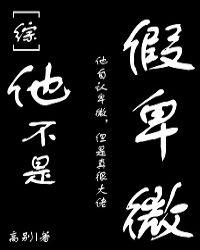 [综]
他不是
他自认卑微，但是真很大佬
假卑微
高别|著